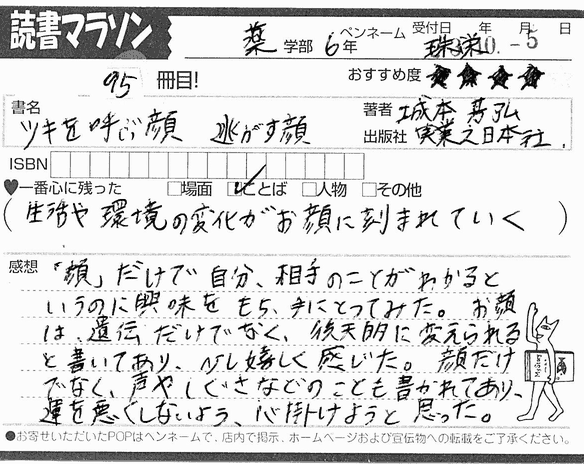 読書マラソン
薬 学部 6年 ペンネーム 珠洸 受付日 年 月 日
10.-5
95 冊目! おすすめ度 ★★★★
書名 ツキを呼ぶ顔 逃がす顔
著者 城本芳弘
出版社 実業之日本社.
ISBN
♥一番心に残った □場面 ☑ことば □人物 □その他
(生活や環境の変化がお顔に刻まれていく)
感想 「顔」だけで自分、相手のことがわかると
いうのに興味をもち、手にとってみた。お顔
は、遺伝だけでなく、後天的に変えられる
と書いてあり、少し嬉しく感じた。顔だけ
でなく、声やしぐさなどのことも書かれてあり、
運を悪くしないよう、心掛けようと思った。
●お寄せいただいたPOPはペンネームで、店内で掲示、ホームページおよび宣伝物への転載をご了承ください。